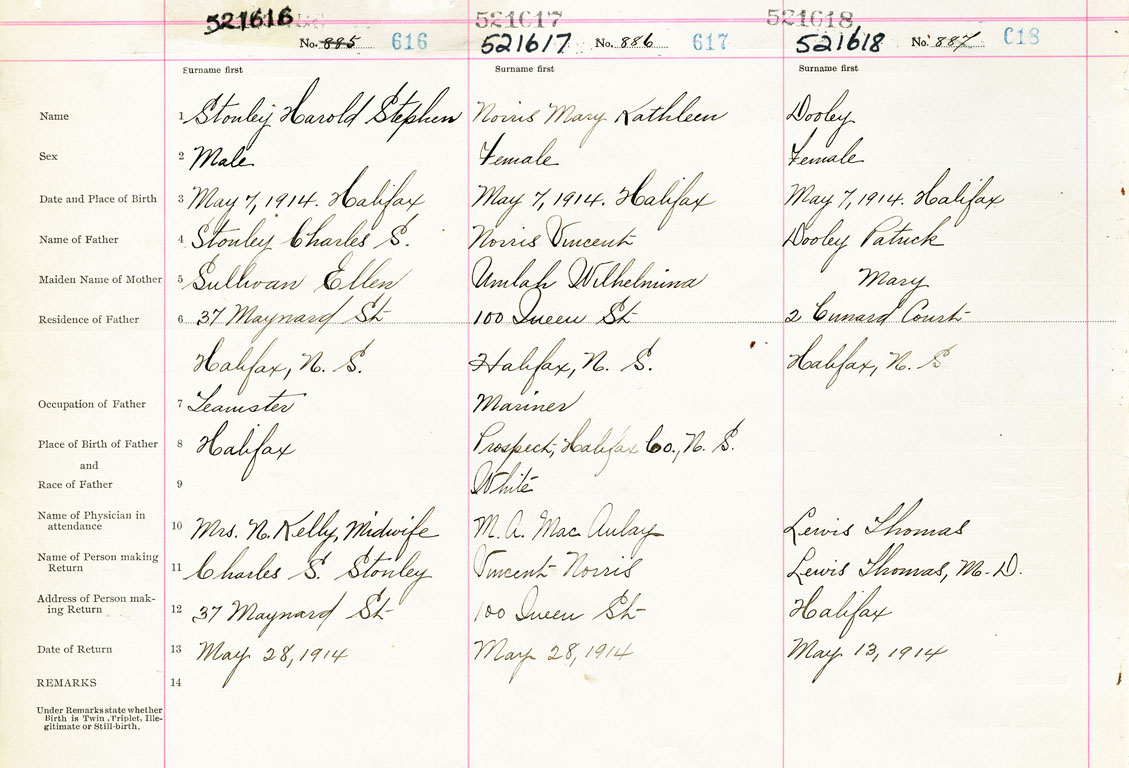 521616 521617 521618
No. 885 616 521617 No. 886 617 521618 No. 887 C18
Surname first Surname first Surname first
Name 1 Stonley Harold Stephen Norris Mary Kathleen Dooley
Sex 2 Male Female Female
Date and Place of Birth 3 May 7, 1914. Halifax May 7, 1914. Halifax May 7, 1914. Halifax
Name of Father 4 Stonley Charles S. Norris Vincent Dooley Patrick
Maiden Name of Mother 5 Sullivan Ellen Umlah Wilhelmina Mary
Residence of Father 6 37 Maynard St 100 Queen St 2 Cunard Court
Halifax, N. S. Halifax, N. S. Halifax, N. S
Occupation of Father 7 Teamster Mariner
Place of Birth of Father 8 Halifax Prospect, Halifax Co., N. S.
and
Race of Father 9 White
Name of Physician in
attendance 10 Mrs. N. Kelly, Midwife M. A. MacAulay Lewis Thomas
Name of Person making
Return 11 Charles S. Stonley Vincent Norris Lewis Thomas, M. D.
Address of Person mak-
ing Return 12 37 Maynard St 100 Queen St Halifax
Date of Return 13 May 28, 1914 May 28, 1914 May 13, 1914
REMARKS 14
Under Remarks state whether
Birth is Twin, Triplet, Ille-
gitimate or Still-birth.